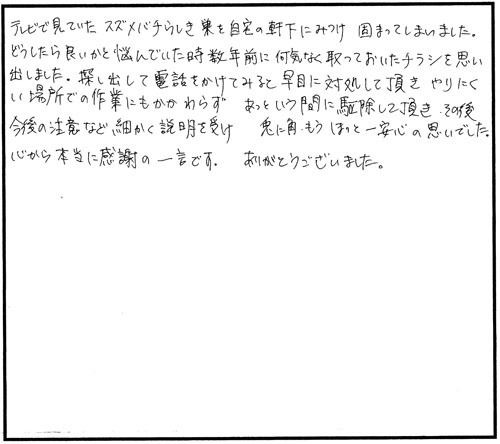 テレビで見ていた スズメバチらしき 巣を自宅の軒下にみつけ 固まってしまいました。
どうしたら良いかと悩んでいた時 数年前に何気なく取っておいたチラシを思い
出しました。探し出して電話をかけてみると 早目に対処して頂き やりにく
い場所での作業にもかかわらず あっという間に駆除して頂き その後
今後の注意など 細かく説明を受け 兎に角 もう ほっと一安心の思いでした。
心から本当に感謝の一言です。 ありがとうございました。